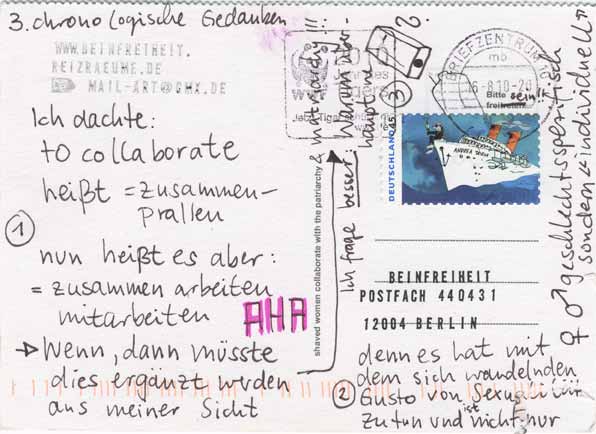 3. chronologische Gedanken
WWW.BEINFREIHEIT.
REIZRAEUME.DE
MAIL-ART@GMX.DE
Ich dachte:
to collaborate
heißt = zusammen-
prallen
①
nun heißt es aber:
= zusammen arbeiten
mitarbeiten
AHA
→ Wenn, dann müsste
dies ergänzt werden
aus meiner Sicht
shaved women collaborate with the patriarchy
& matriarchy!!!
②
denn es hat mit
dem sich wandelnden
Gusto von
zu tun und ist nicht nur
♀ ♂ geschlechtsspezifisch
sondern "individuell"
③
Ich frage besser: Warum über-
haupt
?
2010
BRIEFZENTRUM
mb
6.8.10-20
Bitte
freihalten
DEUTSCHLAND
ANDREA DORIA
BEINFREIHEIT
POSTFACH 440431
12004 BERLIN